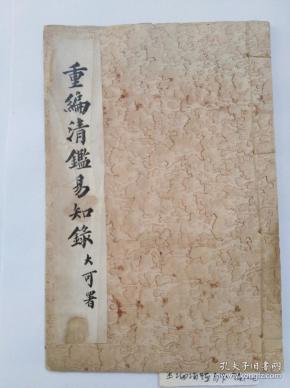 重編清鑑易知錄
大可署
孔夫子旧书网